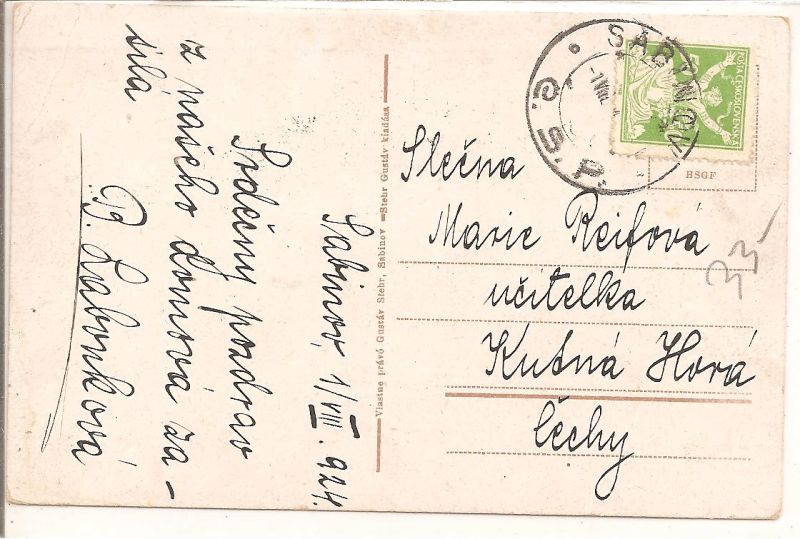 Sabinov, 1/VIII. 924.
Srdečný pozdrav
z našeho domova za-
sílá
B. Labouková
Vlastne právo Gustáv Stehr, Sabinov — Stehr Gustáv kiadása
SABINOV
G. S. P.
POŠTA ČESKOSLOVENSKÁ
HSGF
Slečna
Marie Reifová
učitelka
Kutná Horá
Čechy
33